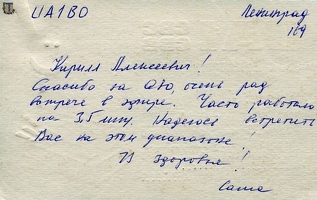 UA1BO
Ленинград
164
Кирилл Алексеевич!
Спасибо за QSO, очень рад
встрече в эфире. Часто работаю
на 3,5 мгц. Надеюся встретить
Вас на этом диапазоне!
73 Здоровья!
Саша